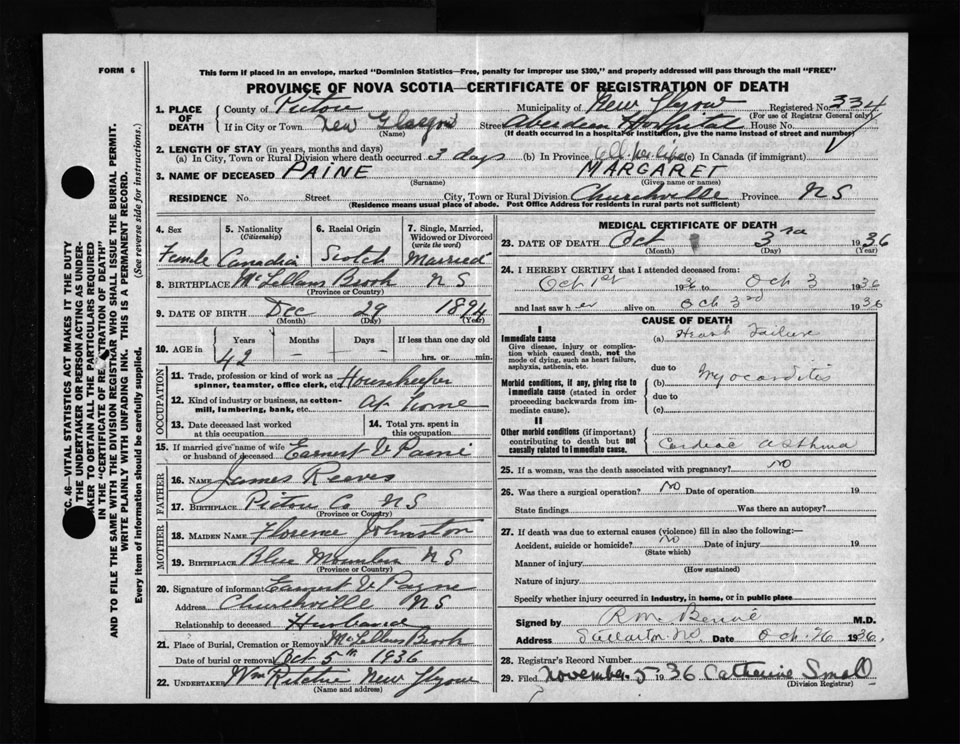 FORM 6
This form if placed in an envelope, marked "Dominion Statistics—Free, penalty for improper use $300," and properly addressed will pass through the mail "FREE"
PROVINCE OF NOVA SCOTIA—CERTIFICATE OF REGISTRATION OF DEATH
1. PLACE OF DEATH County of Pictou Municipality of New Glasgow Registered No. 334
(For use of Registrar General only)
If in City or Town New Glasgow (Name) Street Aberdeen Hospital House No.
(If death occurred in a hospital or institution, give the name instead of street and number)
2. LENGTH OF STAY (in years, months and days)
(a) In City, Town or Rural Division where death occurred 3 days (b) In Province all her life (c) In Canada (if immigrant)
3. NAME OF DECEASED PAINE (Surname) MARGARET (Given name or names)
RESIDENCE No. Street City, Town or Rural Division Churchville Province N S
(Residence means usual place of abode. Post Office Address for residents in rural parts not sufficient)
4. Sex 5. Nationality (Citizenship) 6. Racial Origin 7. Single, Married, Widowed or Divorced (write the word)
Female Canadian Scotch Married
8. BIRTHPLACE McLellans Brook N S
(Province or Country)
9. DATE OF BIRTH Dec 29 1894
(Month) (Day) (Year)
10. AGE in Years Months Days If less than one day old
42 – – hrs. or min.
OCCUPATION
11. Trade, profession or kind of work as spinner, teamster, office clerk, etc. Housekeeper
12. Kind of industry or business, as cotton-mill, lumbering, bank, etc. at home
13. Date deceased last worked at this occupation 14. Total yrs. spent in this occupation
15. If married give name of wife or husband of deceased Earnest V Paine
FATHER
16. Name James Reeves
17. Birthplace Pictou Co N S
(Province or Country)
MOTHER
18. Maiden Name Florence Johnston
19. Birthplace Blue Mountain N S
(Province or Country)
20. Signature of informant Earnest V Payne
Address Churchville N S
Relationship to deceased Husband
21. Place of Burial, Cremation or Removal McLellans Brook
Date of burial or removal Oct 5th 1936
22. Undertaker Wm Ritchie New Glasgow
(Name and address)
MEDICAL CERTIFICATE OF DEATH
23. DATE OF DEATH Oct 3rd 1936
(Month) (Day) (Year)
24. I HEREBY CERTIFY that I attended deceased from:
Oct 1st 1936 to Oct 3 1936
and last saw her alive on Oct 3rd 1936
CAUSE OF DEATH
I
Immediate cause (a) Heart Failure
Give disease, injury or complication which caused death, not the mode of dying, such as heart failure, asphyxia, asthenia, etc.
due to
Morbid conditions, if any, giving rise to immediate cause (stated in order proceeding backwards from immediate cause).
(b) Myocarditis
due to
(c)
II
Other morbid conditions (if important) contributing to death but not causally related to immediate cause.
Cardiac Asthma
25. If a woman, was the death associated with pregnancy? No
26. Was there a surgical operation? No Date of operation 19
State findings Was there an autopsy?
27. If death was due to external causes (violence) fill in also the following:—
Accident, suicide or homicide? No Date of injury 19
(State which)
Manner of injury
(How sustained)
Nature of injury
Specify whether injury occurred in Industry, in home, or in public place
Signed by R M Benvie M.D.
Address Stellarton N.S. Date Oct 26 1936
28. Registrar's Record Number
29. Filed November 5 1936 Catherine Small
(Division Registrar)
VITAL STATISTICS ACT MAKES IT THE DUTY
THE UNDERTAKER OR PERSON ACTING AS UNDER-
TAKER TO OBTAIN ALL THE PARTICULARS REQUIRED
IN THE "CERTIFICATE OF REGISTRATION OF DEATH"
AND TO FILE THE SAME WITH THE DIVISION REGISTRAR WHO SHALL ISSUE THE BURIAL PERMIT.
WRITE PLAINLY WITH UNFADING INK. THIS IS A PERMANENT RECORD.
Every item of information should be carefully supplied. (See reverse side for instructions.)